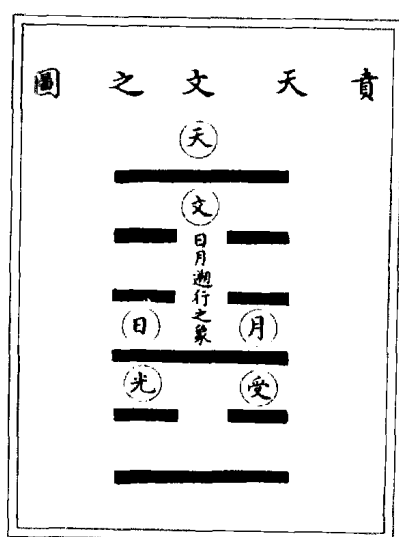 賁天文之圖
天
文
日月遡行之象
月 日
受 光